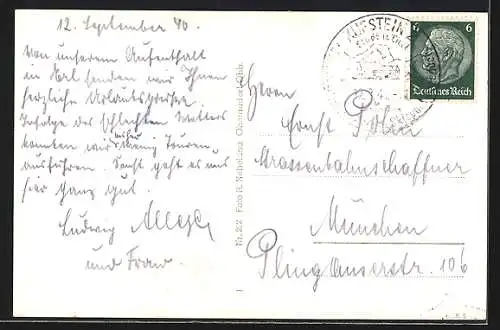 12. September 40.
Von unserem Aufenthalt
in Erl senden wir Ihnen
herzliche Urlaubsgrüsse.
Infolge des schlechten Wetters
konnten wir bisher wenig Touren
ausführen. Sonst geht es uns
hier ganz gut.
Ludwig
und Frau.
Nr. 212 Foto R. Nebelung Oberaudorf Obb.
KUFSTEIN
6 6
Deutsches Reich
Herrn
Ernst
Strassenbahnschaffner
München
Plinganserstr. 106